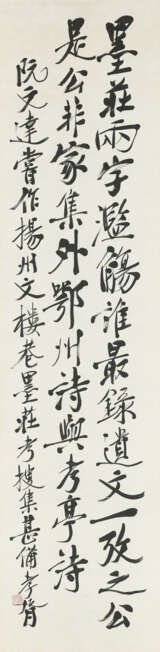 墨莊兩字濫觴誰最錄遺文一攷之公
是公非家集外鄂州詩與考亭詩
阮文達嘗作揚州文樓巷墨莊考搜集甚備孝胥